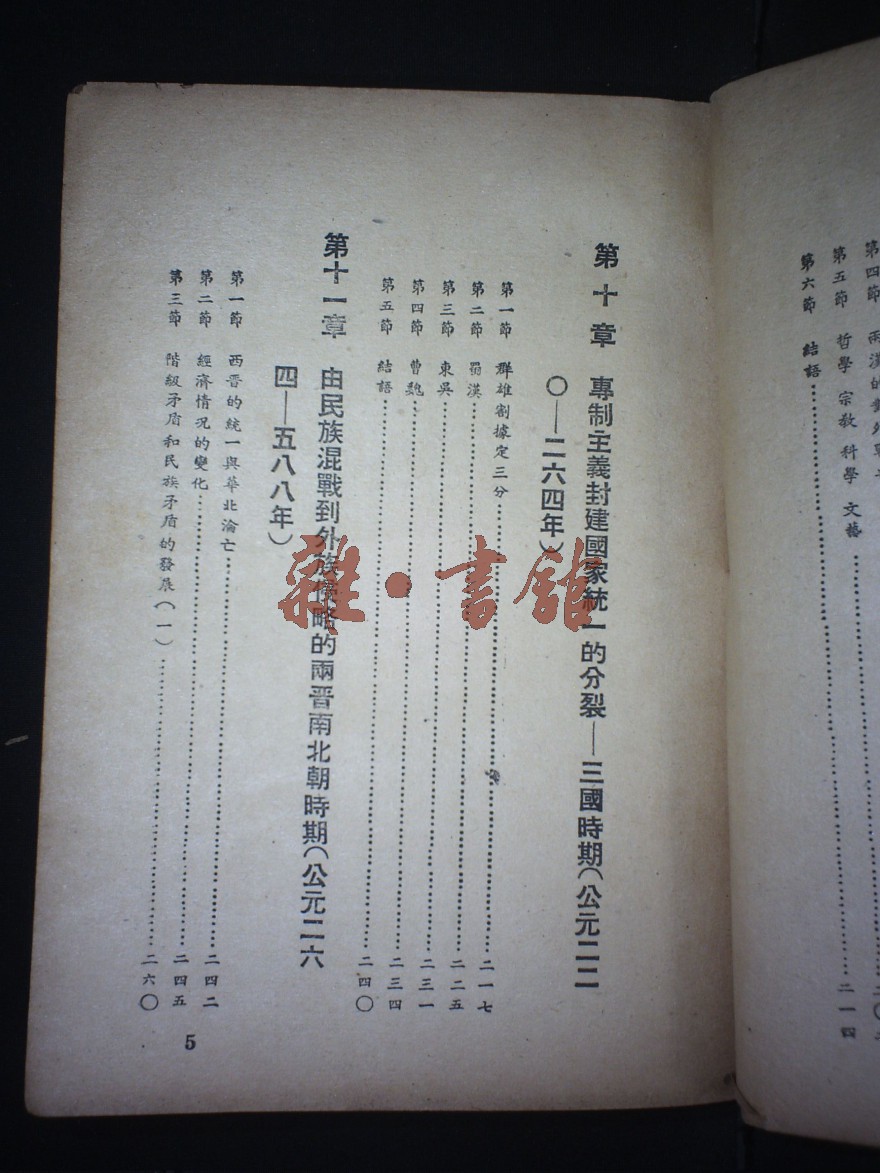 第五節 哲學 宗敎 科學 文藝
第六節 結語……二一四
第十章 專制主義封建國家統一的分裂—三國時期(公元二二
〇—二六四年)
第一節 群雄割據定三分……二一七
第二節 蜀漢……二二五
第三節 東吳……二三一
第四節 曹魏……二三四
第五節 結語……二四〇
第十一章 由民族混戰到外族侵略的兩晋南北朝時期(公元二六
四—五八八年)
第一節 西晋的統一與華北淪亡……二四二
第二節 經濟情况的變化……二四五
第三節 階級矛盾和民族矛盾的發展(一)……二六〇
5
雜·書館